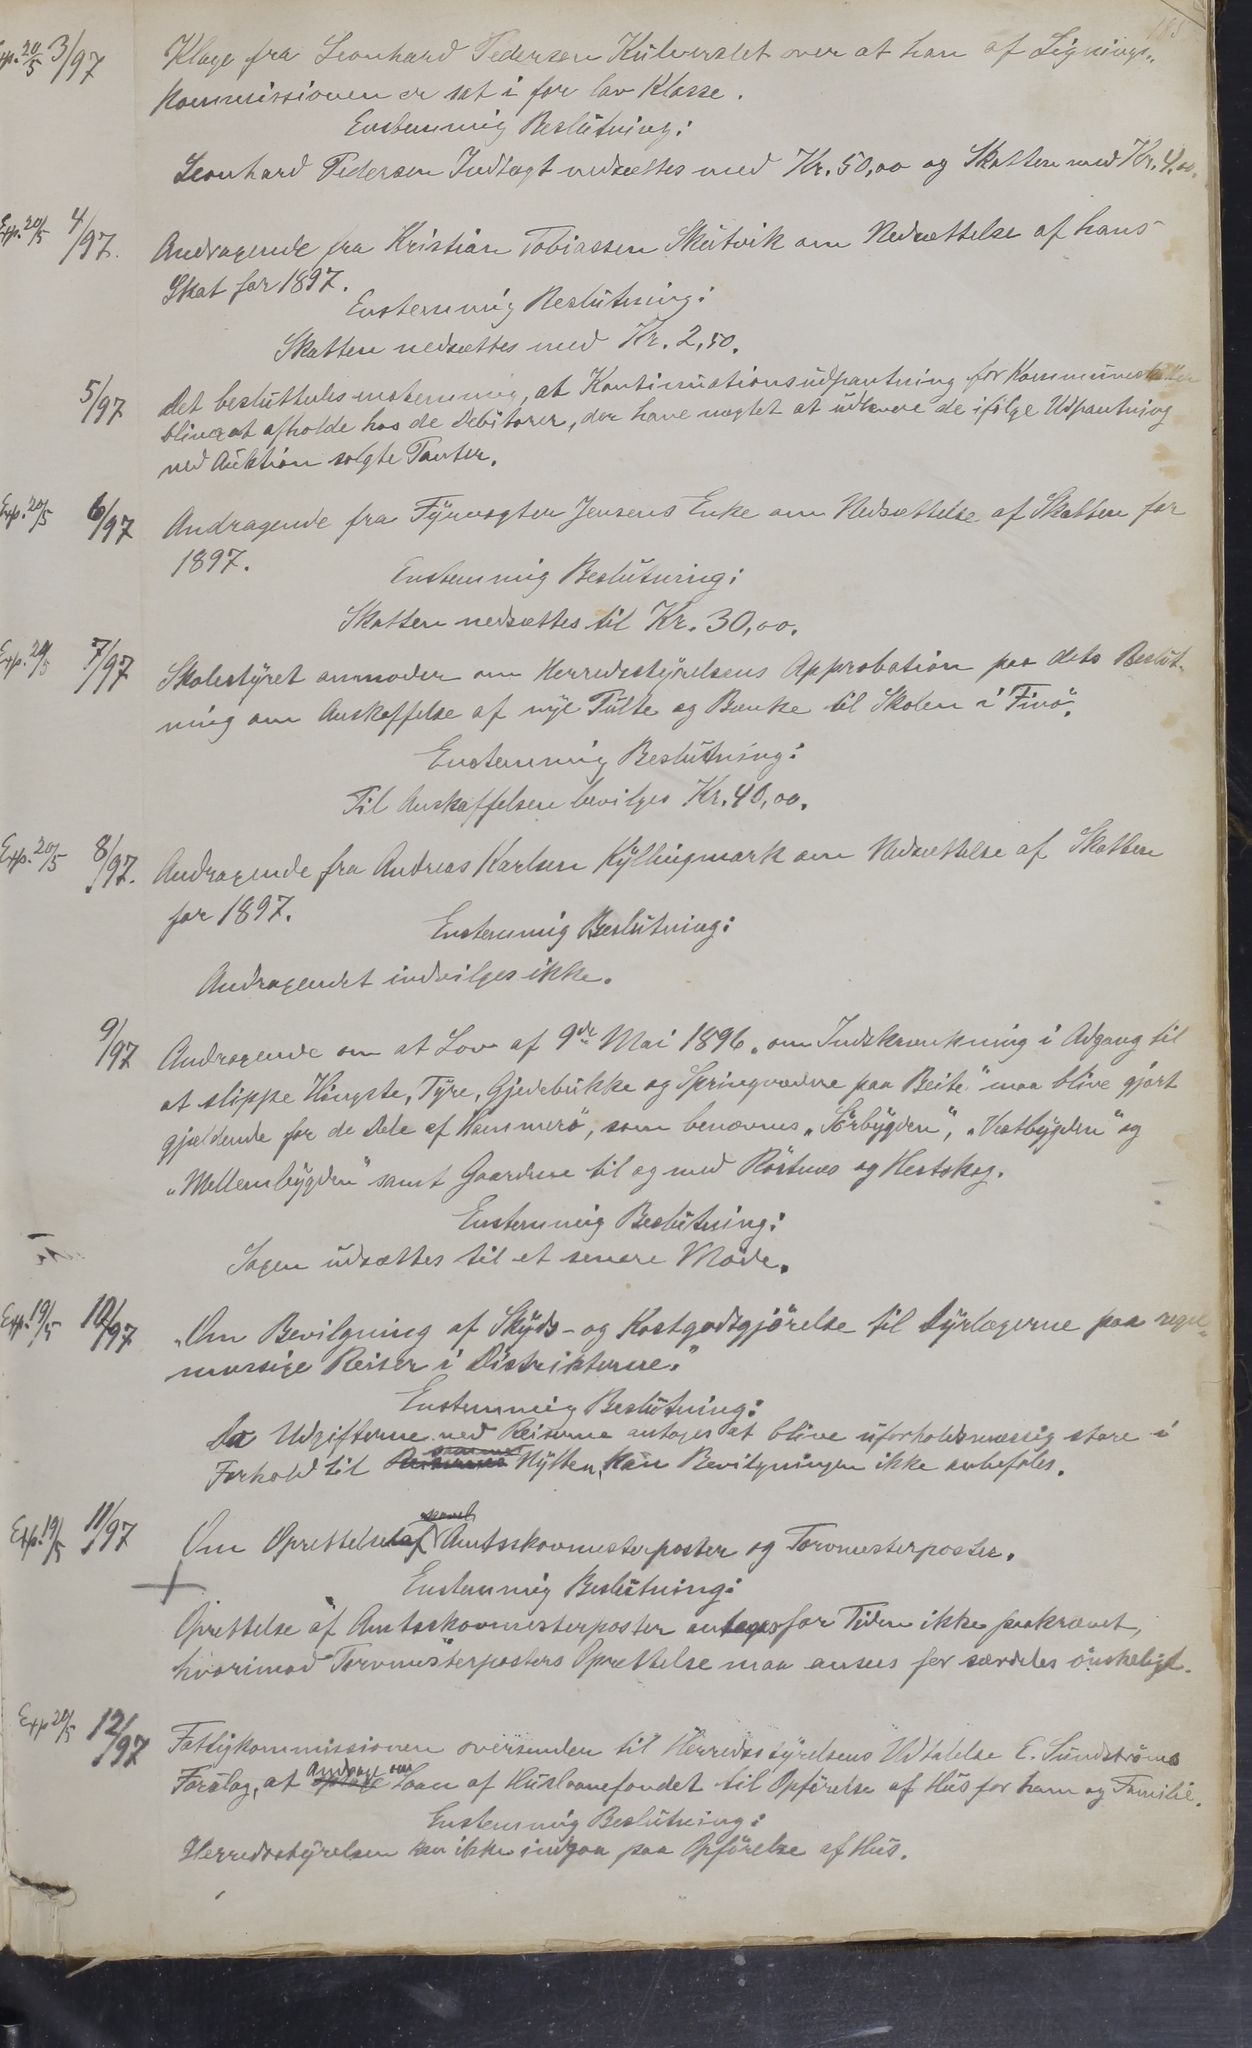 185
Exp. 20/5 3/97 Klage fra Leonhard Pedersen Kulverslet over at han af Lignings-
kommissionen er sat i for lav Klasse.
Enstemmig Beslutning:
Leonhard Pedersen Indtægt nedsættes med Kr. 50,00 og Skatten med Kr. 4,00.
Exp. 20/5 4/97. Andragende fra Kristian Tobiassen Skutvik om Nedsættelse af hans
Skat for 1897.
Enstemmig Beslutning:
Skatten nedsættes med Kr. 2,50.
5/97 Det besluttedes enstemmig, at Kontinuationsudpantning for Kommuneskatter
bliver at afholde hos de Debitorer, der have nægtet at udlevere de ifølge Udpantning
ved Auktion solgte Panter.
Exp. 20/5 6/97 Andragende fra Fyrvogter Jensens Enke om Nedsættelse af Skatten for
1897.
Enstemmig Beslutning:
Skatten nedsættes til Kr. 30,00.
Exp. 20/5 7/97 Skolestyret anmoder om Herredsstyrelsens Approbation paa dets Beslut-
ning om Anskaffelse af nye Pulte og Bænke til Skolen i Finö.
Enstemmig Beslutning:
Til Anskaffelsen bevilges Kr. 40,00.
Exp. 20/5 8/97. Andragende fra Andreas Karlsen Kyllingmark om Nedsættelse af Skatten
for 1897.
Enstemmig Beslutning:
Andragendet indvilges ikke.
9/97 Andragende om at Lov af 9de Mai 1896 „om Indskrænkning i Adgang til
at slippe Hingste, Tyre, Gjedebukke og Springvædere paa Beite" maa blive gjort
gjældende for de Dele af Hammerö, som benævnes „Sörbygden", „Vestbygden" og
„Mellembygden" samt Gaardene til og med Röstnes og Hestskog.
Enstemmig Beslutning:
Sagen udsættes til et senere Möde.
Exp. 19/5 10/97 „Om Bevilgning af Skyds- og Kostgodtgjörelse til Dyrlægerne paa regel-
mæssige Reiser i Distrikterne."
Enstemmig Beslutning:
Da Udgifterne ved Reiserne antages at blive uforholdsmæssig store i
Forhold til Nytten, kan Bevilgningen ikke anbefales.
Exp. 19/5 11/97 Om Oprettelse af Amtsskovmesterposter og Torvmesterposter.
Enstemmig Beslutning:
Oprettelse af Amtsskovmesterposter antages for Tiden ikke paakrævet,
hvorimod Torvmesterposters Oprettelse maa ansees for særdeles önskeligt.
Exp 20/5 12/97 Fattigkommissionen oversender til Herredsstyrelsens Udtalelse E. Sundströms
Forslag, at Andrage om Laan af Huslaanefondet til Opförelse af Hus for ham og Familie.
Enstemmig Beslutning:
Herredsstyrelsen kan ikke indgaa paa Opförelse af Hus.